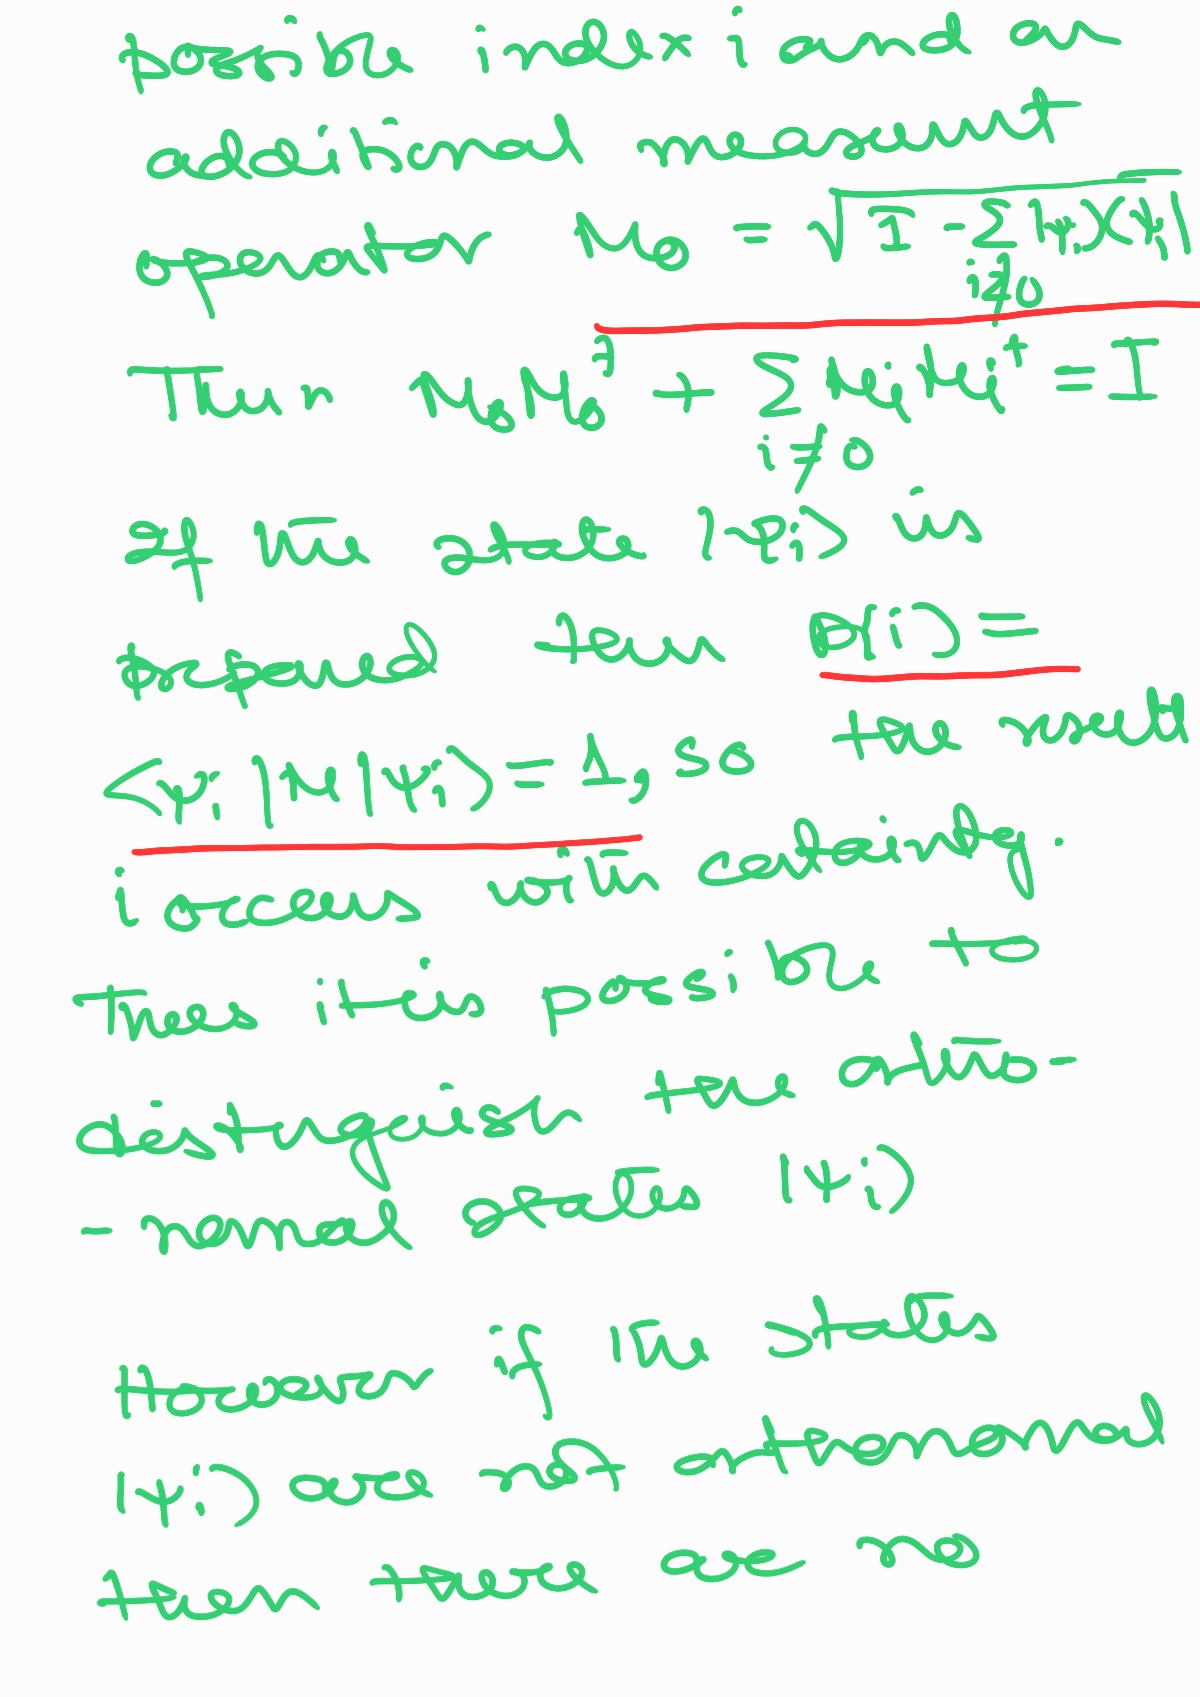 possible index i and an
additional measurement
operator M₀ = √(I - Σ_{i≠0} |ψᵢ⟩⟨ψᵢ|)
Then M₀M₀† + Σ_{i≠0} MᵢMᵢ† = I
If the state |ψᵢ⟩ is
prepared then p(i) =
<ψᵢ|M|ψᵢ⟩ = 1, so the result
i occurs with certainty.
Thus it is possible to
distinguish the ortho-
-normal states |ψᵢ⟩
However if the states
|ψᵢ⟩ are not orthonormal
then there are no